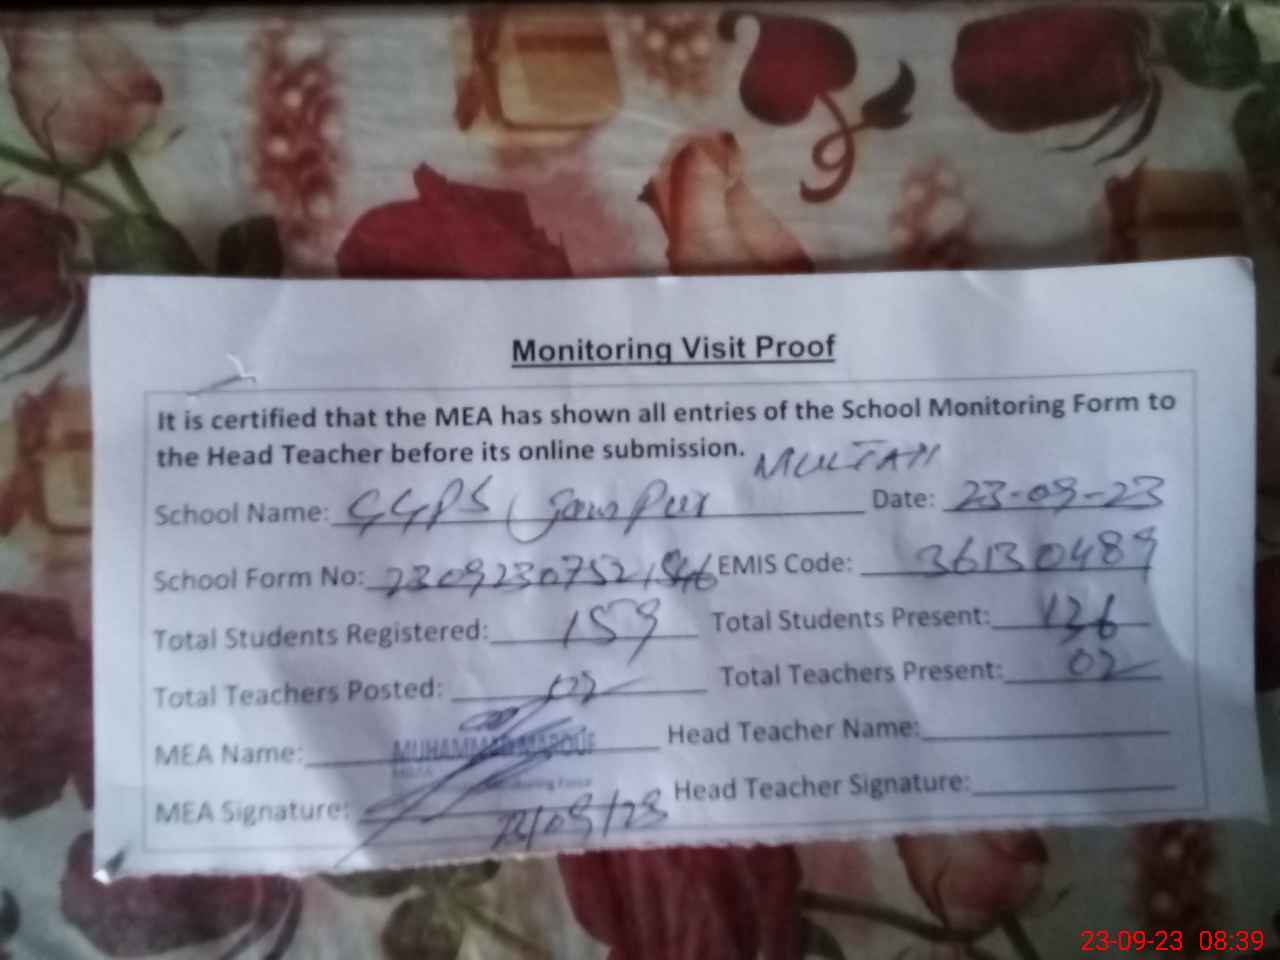 Monitoring Visit Proof
It is certified that the MEA has shown all entries of the School Monitoring Form to
the Head Teacher before its online submission.
MULTAN
School Name: GGPS Date: 23-09-23
School Form No: EMIS Code: 36130489
Total Students Registered: 159 Total Students Present: 136
Total Teachers Posted: 02 Total Teachers Present: 02
MEA Name: MUHAMMAD MAROUF Head Teacher Name:
MEA
Monitoring Force
MEA Signature: Head Teacher Signature:
23-09-23 08:39